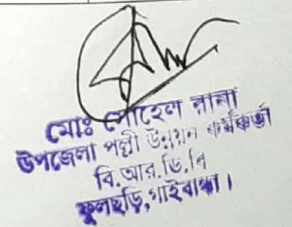 মোঃ সোহেল রানা
উপজেলা পল্লী উন্নয়ন কর্মকর্তা
বি.আর.ডি.বি
ফুলছড়ি,গাইবান্ধা।